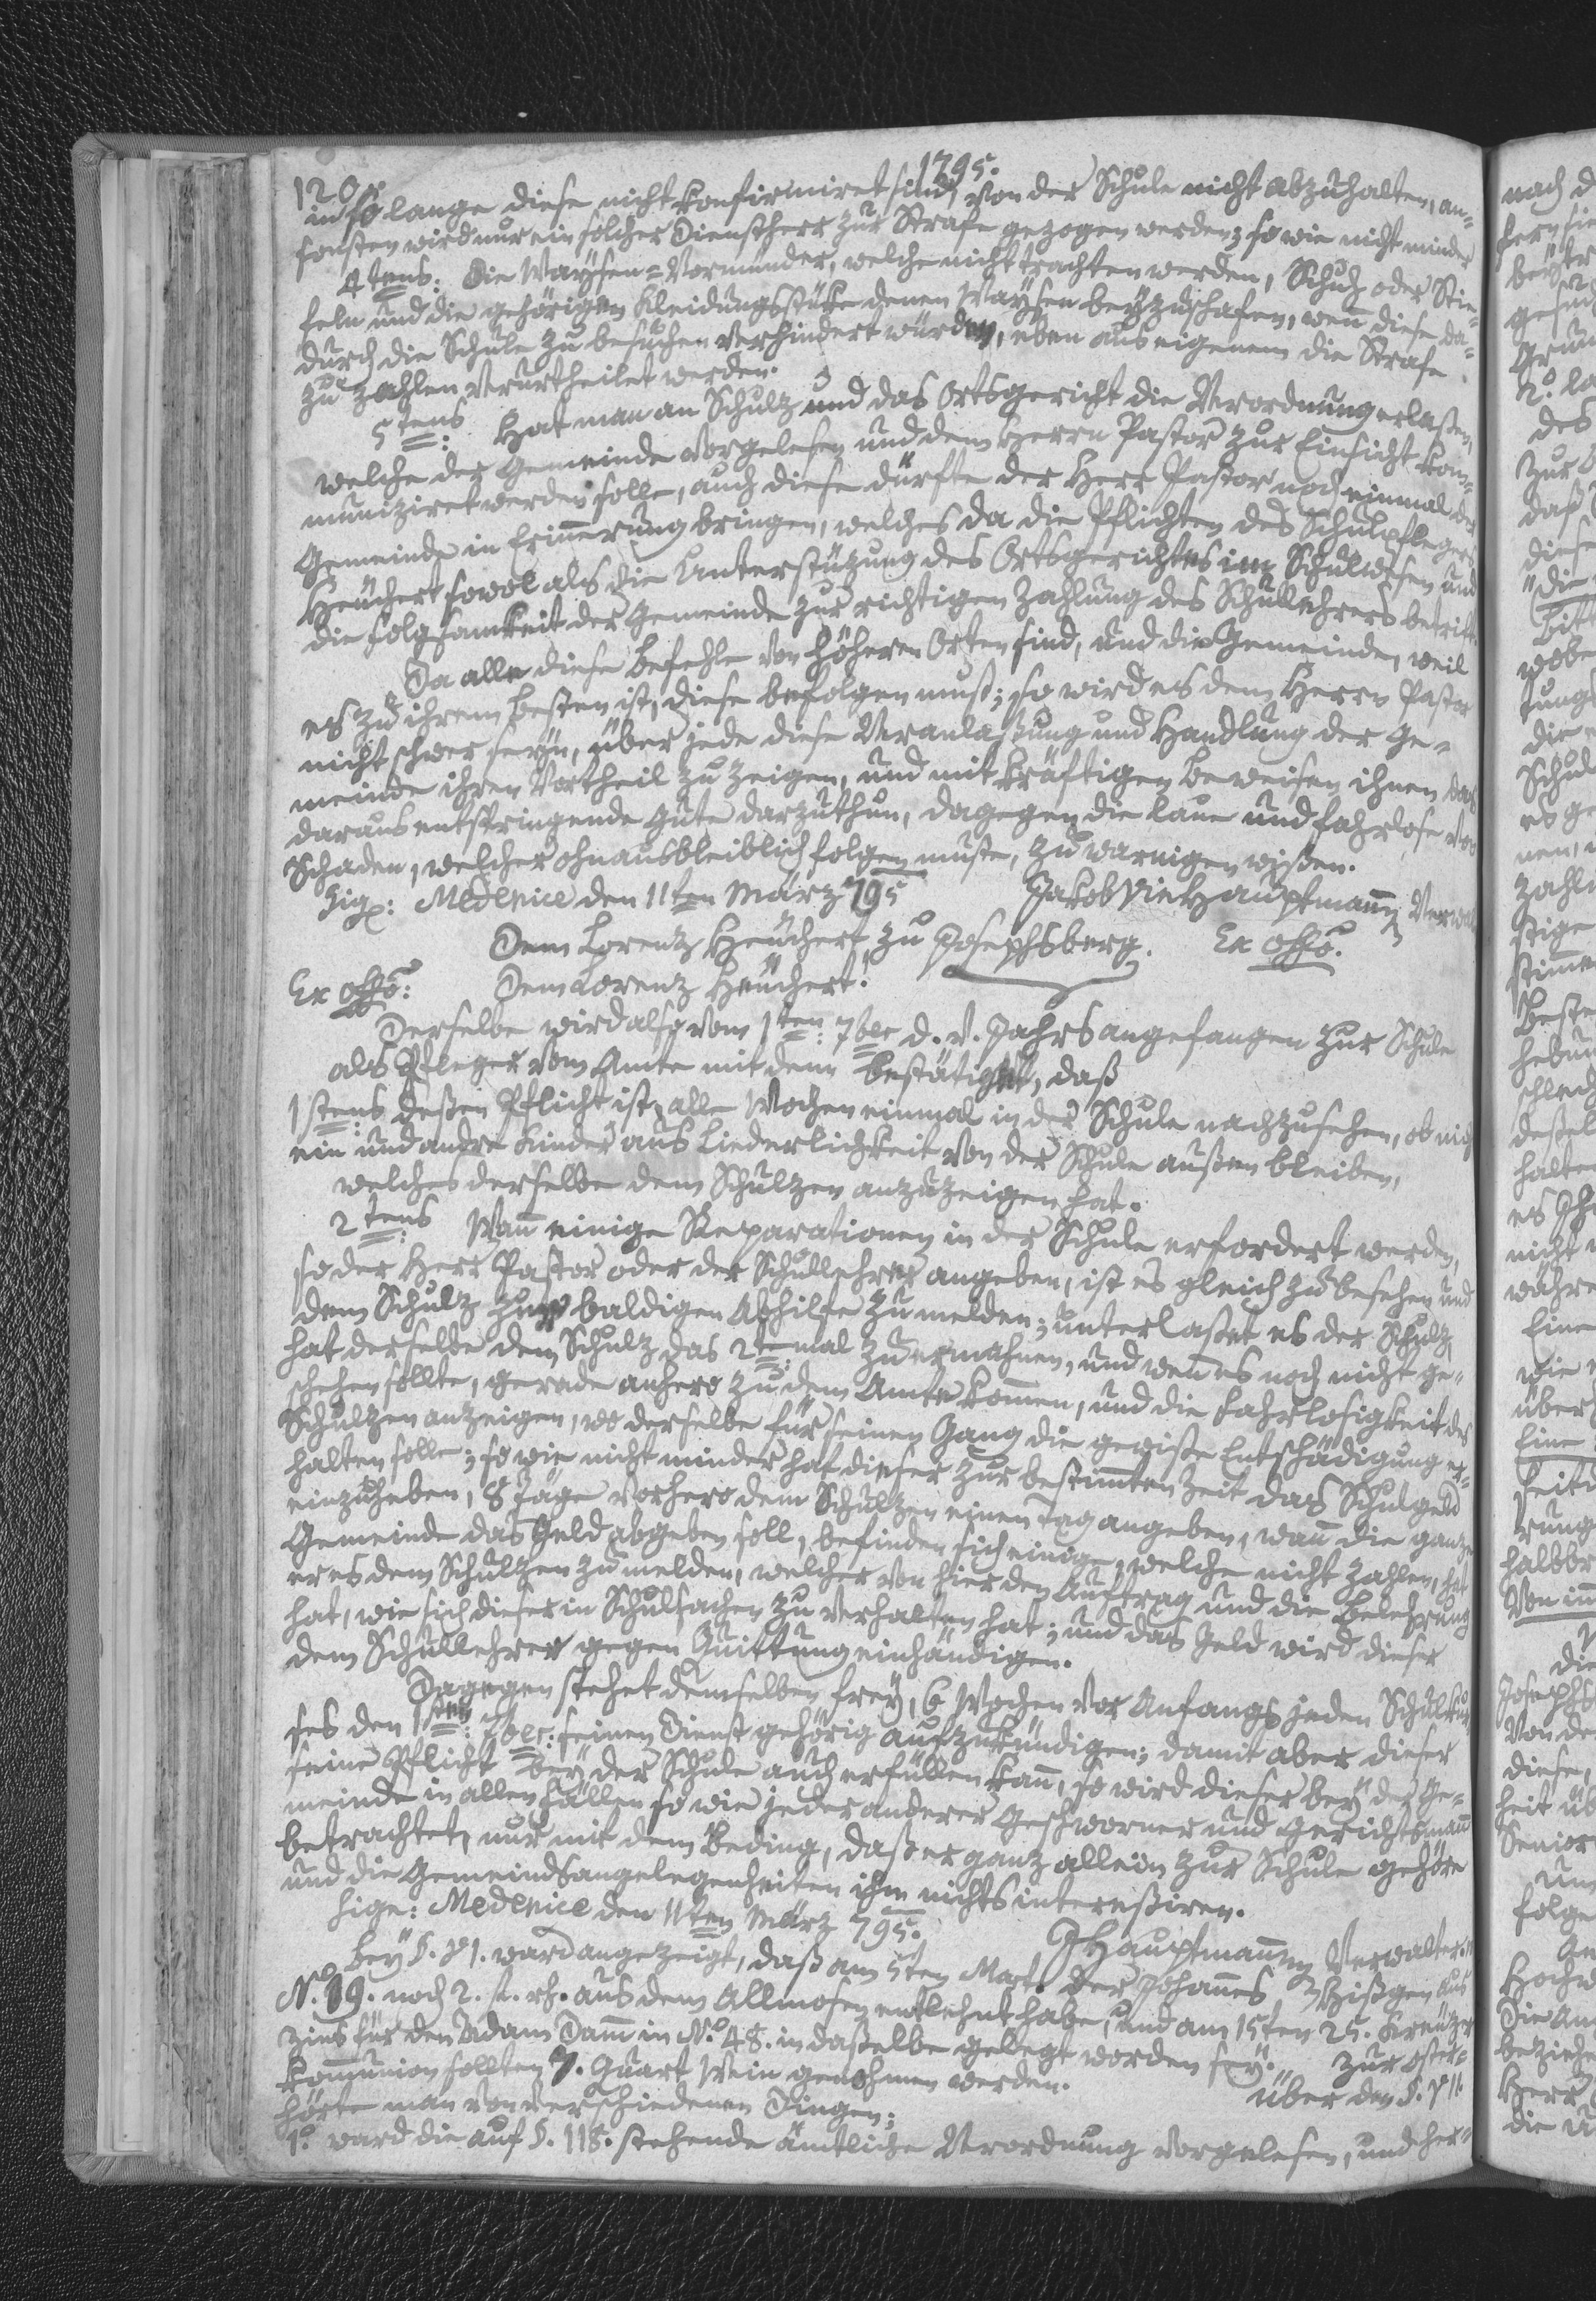 120. 1795.
in so lange diese nicht konfirmiret sind, von der Schule nicht abzuhalten, an-
sonsten wird nur ein solcher Dienstherr zur Strafe gezogen werden; so wie nicht minder
4tens: Die Waysen-Vormünder, welche nicht trachten werden, Schuh oder Stie-
feln und die gehörigen Kleidungsstüke denen Waysen beyzuschafen, wenn diese da-
durch die Schule zu besuchen verhindert würden, eben aus eigenem die Strafe
zu zahlen verurtheilet werden.
5tens: Hat man an Schulz und das Ortsgericht die Verordnung erlaßen,
welche der Gemeinde vorgelesen und dem Herrn Pastor zur Einsicht kom-
muniziret werden solle, auch diese dürfte der Herr Pastor noch einmal der
Gemeinde in Erinnerung bringen, welches da die Pflichten des Schulpflegers
Heuchert sowol als die Unterstüzung des Ortsgerichtes im Schulwesen und
die Folgsamkeit der Gemeinde zur richtigen Zahlung des Schullehrers betrift.
Da alle diese Befehle von höheren Orten sind, und die Gemeinde, weil
es zu ihrem Besten ist, diese befolgen muß; so wird es dem Herrn Pastor
nicht schwer seyn, über jede diese Veranlaßung und Handlung der Ge-
meinde ihren Vortheil zu zeigen, und mit kräftigen Beweisen ihnen das
daraus entspringende Gute darzuthun, dagegen die laue und fahrlose vor
Schaden, welcher ohnausbleiblich folgen muste, zu warnigen wißen.
Sig: Medenice den 11ten März 795 Jakob Hauptmann Verwal
Dem Lorenz Heuchert zu Josephsberg. Ex offo.
Ex offo: Dem Lorenz Heuchert!
Derselbe wird also vom 1ten 7ber d. v. Jahrs angefangen zur Schule
als Pfleger vom Amte mit dem bestätiget, daß
1stens: deßen Pflicht ist, alle Wochen einmal in der Schule nachzusehen, ob nich
ein und andre Kinder aus Liederlichkeit von der Schule außen bleiben,
welches derselbe dem Schulzen anzuzeigen hat.
2tens: Wann einige Reparationen in der Schule erfordert werden,
so der Herr Pastor oder der Schullehrer angeben, ist es gleich zu besehen und
dem Schulz zur baldigen Abhilfe zu melden; unterlaßet es der Schulz,
hat derselbe dem Schulz das 2temal zu ermahnen, und wenn es noch nicht ge-
schehen sollte, gerade anhero zu dem Amte kommen, und die Fahrlosigkeit des
Schulzen anzeigen, wo derselbe für seinen Gang die gewiße Entschädigung er-
halten solle; so wie nicht minder hat dieser zur bestimmten Zeit das Schulgeld
einzuheben, 8 Täge vorhero dem Schulzen einen Tag angeben, wann die ganze
Gemeinde das Geld abgeben soll, befinden sich einige, welche nicht zahlen, hat
er es dem Schulzen zu melden, welcher von hier den Auftrag und die Belehrung
hat, wie sich dieser in Schulsachen zu verhalten hat; und das Geld wird dieser
dem Schullehrer gegen Quittung einhändigen.
Dagegen stehet demselben frey, 6 Wochen vor Anfangs jeden Schulkur
ses den 1sten 7ber: seinen Dienst gehörig aufzukündigen; damit aber dieser
seine Pflicht bey der Schule auch erfüllen kann, so wird dieser bey der Ge-
meinde in allen Fällen so wie jeder anderer Geschworner und Gerichtsmann
betrachtet, nur mit dem Beding, daß er ganz allein zur Schule gehöre
und die Gemeindsangelegenheiten ihm nichts intereßiren.
Sign: Medenice den 11ten März 795.
JHauptmann Verwalter.
Bey S. 71. ward angezeigt, daß am 5ten Mart. der Johannes Hißgen aus
No. 89. noch 2. fl. rh. aus dem Allmosen entlehnt habe, und am 15ten 25. Kreuzer
Zins für den Adam Damm in No. 48. in daßelbe gelegt worden sey. Zur Oster-
kommunion sollten 7. Quart Wein genohmen werden. Über den
hörte man von verschiedenen Dingen;
1o ward die auf S. 118. stehende ämtliche Verordnung vorgelesen, und her-